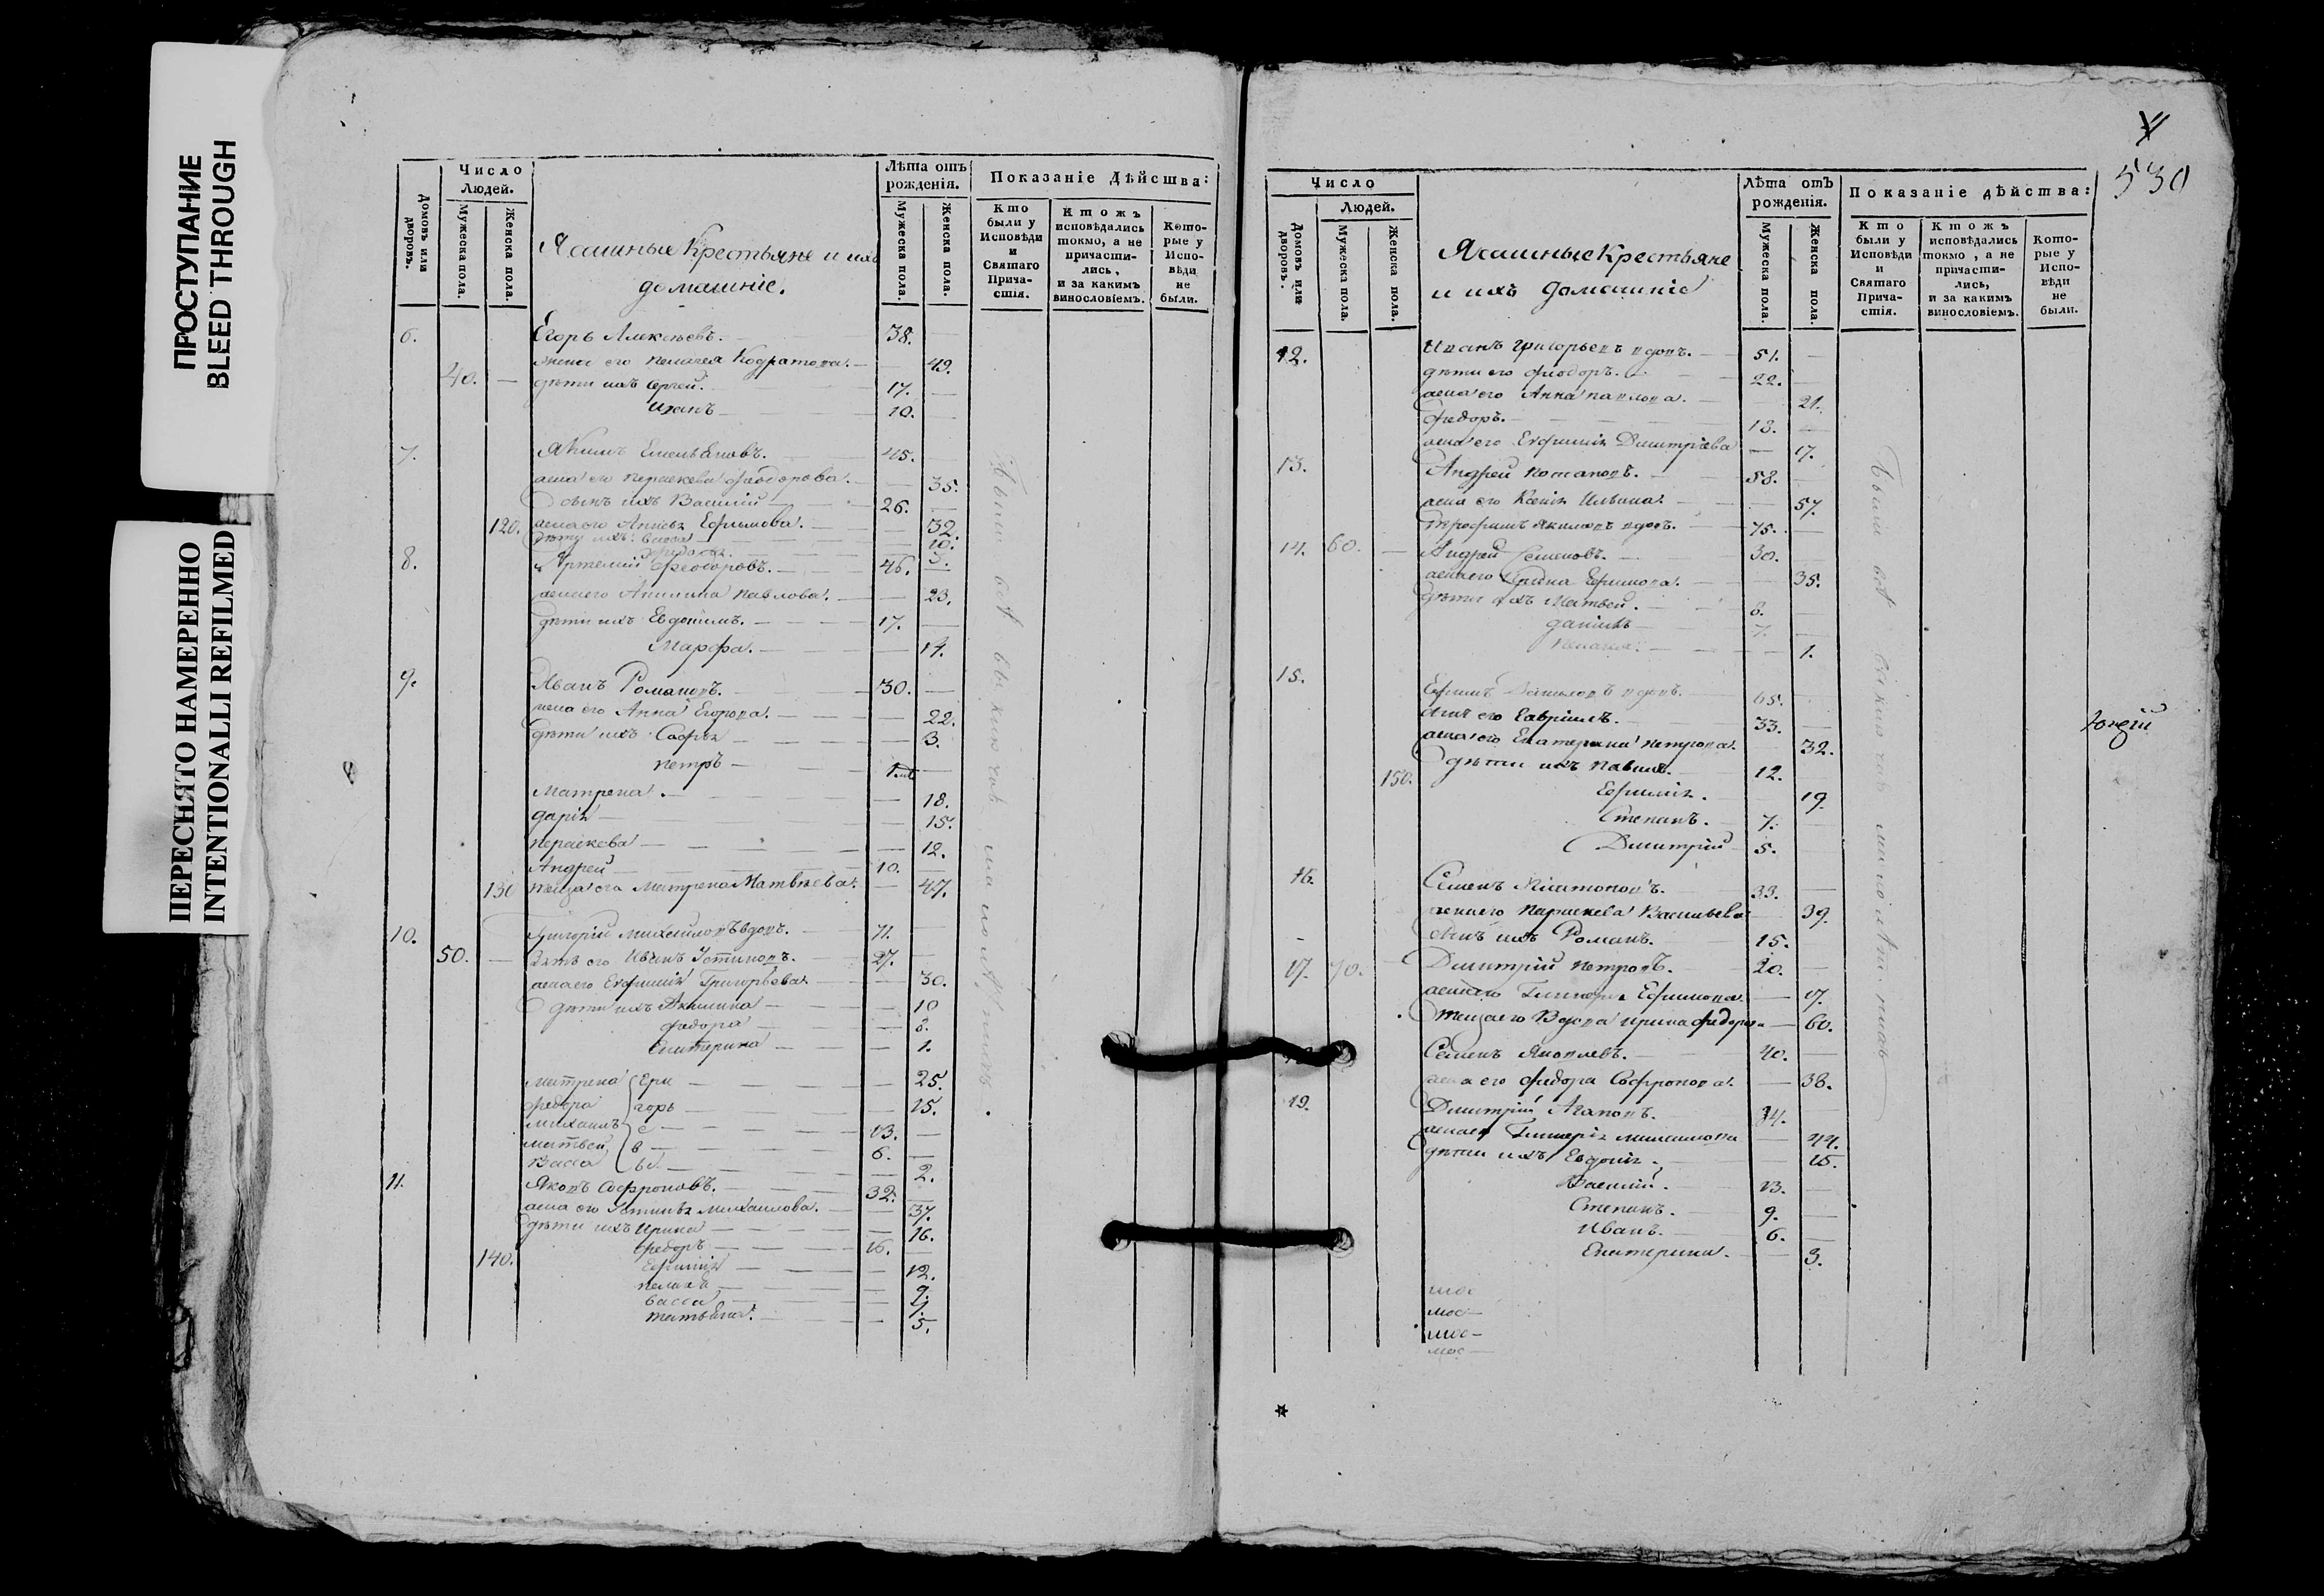 ПРОСТУПАНИЕ
BLEED THROUGH
ПЕРЕСНЯТО НАМЕРЕННО
INTENTIONALLI REFILMED
Домовъ или дворовъ.
Число Людей.
Мужеска пола.
Женска пола.
Ясашные Крестьяне и ихъ
домашніе.
Лѣта отъ рожденія.
Мужеска пола.
Женска пола.
Показаніе Дѣйства:
Кто были у Исповѣди и Святаго Причастія.
Ктожъ исповѣдались токмо, а не причастились, и за какимъ винословіемъ.
Которые у Исповѣди не были.
6. Егоръ Алексѣевъ. 38.
жена его Пелагея Кодратова. 49.
40. дѣти ихъ Сергей. 17.
Иванъ 10.
7. Якимъ Емельяновъ. 45.
жена его Параскева Феодорова. 35.
сынъ ихъ Василій 26.
120. жена его Анисья Ефимова. 32.
дѣти ихъ Васса 10.
3.
8. Артемий Феодоровъ. 46.
жена его Акилина Павлова. 23.
дѣти ихъ Евдокимъ. 17.
Марфа. 14.
9. Иванъ Романовъ. 30.
жена его Анна Егорова. 22.
дѣти ихъ Софья 3.
Петръ 1.
Матрена. 18.
Дарія 15.
Параскева 12.
Андрей 10.
130 теща его Матрена Матвѣева. 47.
10. Григорій Михаиловъ вдовъ. 71.
50. Зять его Иванъ Устиновъ. 27.
жена его Евфимія Григорьева. 30.
дѣти ихъ Акилина 10
Федора 8.
Екатерина 1.
Матрена 25.
Федора 15.
Михаилъ 13.
Матвей 6.
Васса 2.
11. Яковъ Софроновъ. 32.
жена его Устинья Михаилова. 37.
дѣти ихъ Ирина 16.
Федоръ 16.
140. Ефимія 12.
9.
Васса 7.
Татьяна. 5.
Были всѣ
530
Число
Домовъ или дворовъ.
Людей.
Мужеска пола.
Женска пола.
Ясашные Крестьяне
и ихъ домашніе
Лѣта отъ рожденія.
Мужеска пола.
Женска пола.
Показаніе дѣйства:
Кто были у Исповѣди и Святаго Причастія.
Ктожъ исповѣдались токмо, а не причастились, и за какимъ винословіемъ.
Которые у Исповѣди не были.
12. Иванъ Григорьевъ вдовъ. 51.
дѣти его Феодоръ. 22.
жена его Анна Павлова. 21.
Федоръ. 18.
жена его Евфимія Димитріева 17.
13. Андрей Потаповъ. 58.
жена его Ксенія Ильина. 57.
Трофимъ Якимовъ вдовъ. 75.
14. 60. Андрей Семеновъ. 30.
жена его Ирина Ефимова. 35.
дѣти ихъ Матвей. 8.
Даніилъ 7.
Пелагея. 1.
15. Ефимъ Даниловъ вдовъ. 65.
сынъ его Гавріилъ. 33.
жена его Екатерина Петрова. 32.
150. дѣти ихъ Павелъ. 12.
Ефимія. 19.
Степанъ. 7.
Димитрій 5.
16. Семенъ Платоновъ. 33.
жена его Параскева Васильева 39.
сынъ ихъ Романъ. 15.
17. 70. Димитрій Петровъ. 20.
жена его Гликерія Ефимова. 17.
теща его вдова Ирина Федорова 60.
Семенъ Яковлевъ. 40.
жена его Федора Софронова. 38.
19. Димитрій Агаповъ. 34.
жена его Гликерія 44.
дѣти ихъ Евдокія. 15.
Василій. 13.
Степанъ. 9.
Иванъ. 6.
Екатерина. 3.
Были всѣ